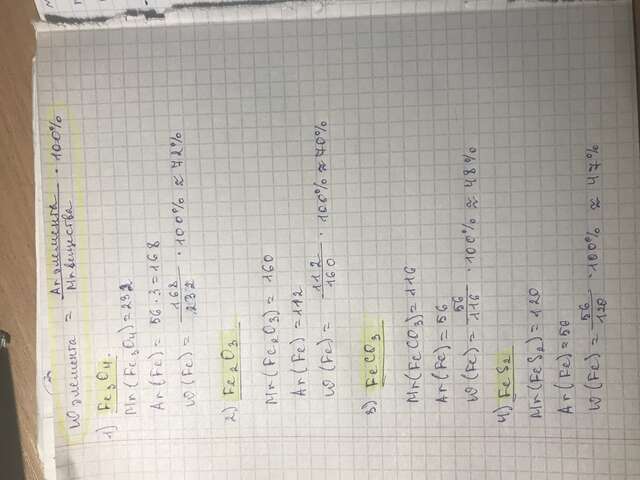 W элемента = Ar элемента / Mr вещества · 100%
1) Fe3O4.
Mr(Fe3O4)=232
Ar(Fe)= 56·3=168
W(Fe)= 168/232 · 100% ≈ 72%
2) Fe2O3
Mr(Fe2O3)= 160
Ar(Fe)=112
W(Fe)= 112/160 · 100% ≈ 70%
3) FeCO3
Mr(FeCO3)=116
Ar(Fe)=56
W(Fe)= 56/116 · 100% ≈ 48%
4) FeS2
Mr(FeS2)=120
Ar(Fe)=56
W(Fe)= 56/120 · 100% ≈ 47%